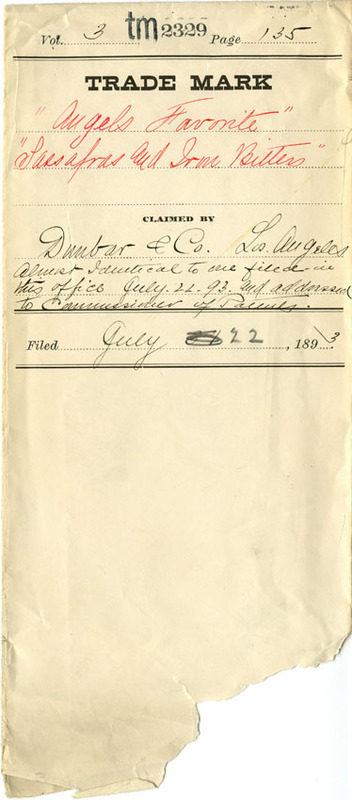 Vol. 3 tm 2329 Page 135
TRADE MARK
"Angels Favorite"
"Sassafras and Iron Bitters"
CLAIMED BY
Dunbar & Co. Los Angeles
Almost Identical to one filed in
this office July. 22. 93. and addressed
to Commissioner of Patents.
Filed July 22, 1893